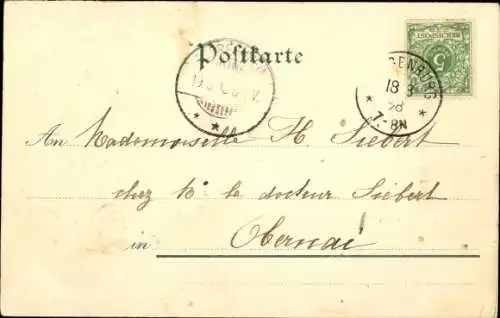 Postkarte
REICHSPOST
5
18 8
98
7-8N
An Mademoiselle H. Siebert
chez M. le docteur Siebert
in Obernai